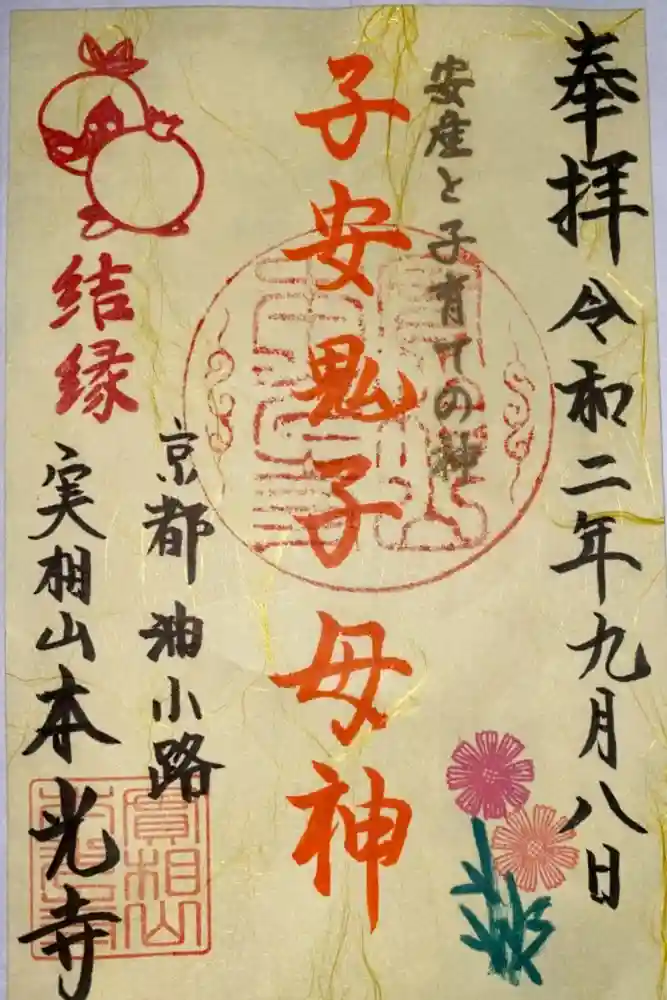 奉拝 令和二年九月八日
安産と子育ての神
子安鬼子母神
結縁
京都 油小路
実相山本光寺
實相山
本光寺